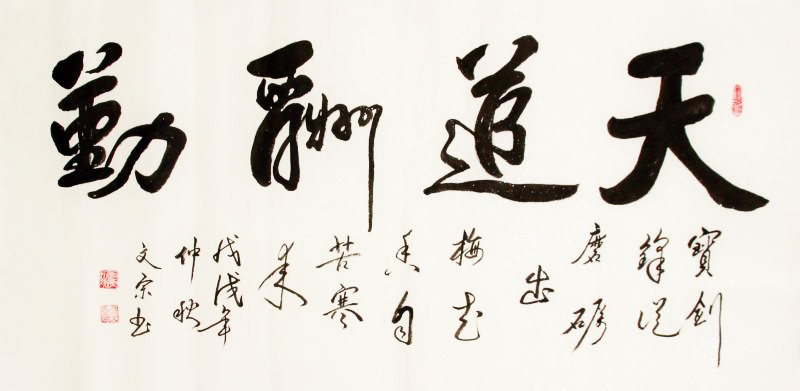 天道酬勤
寶劍
鋒從
磨礪
出
梅花
香自
苦寒
來
戊戌年
仲秋
文宗书